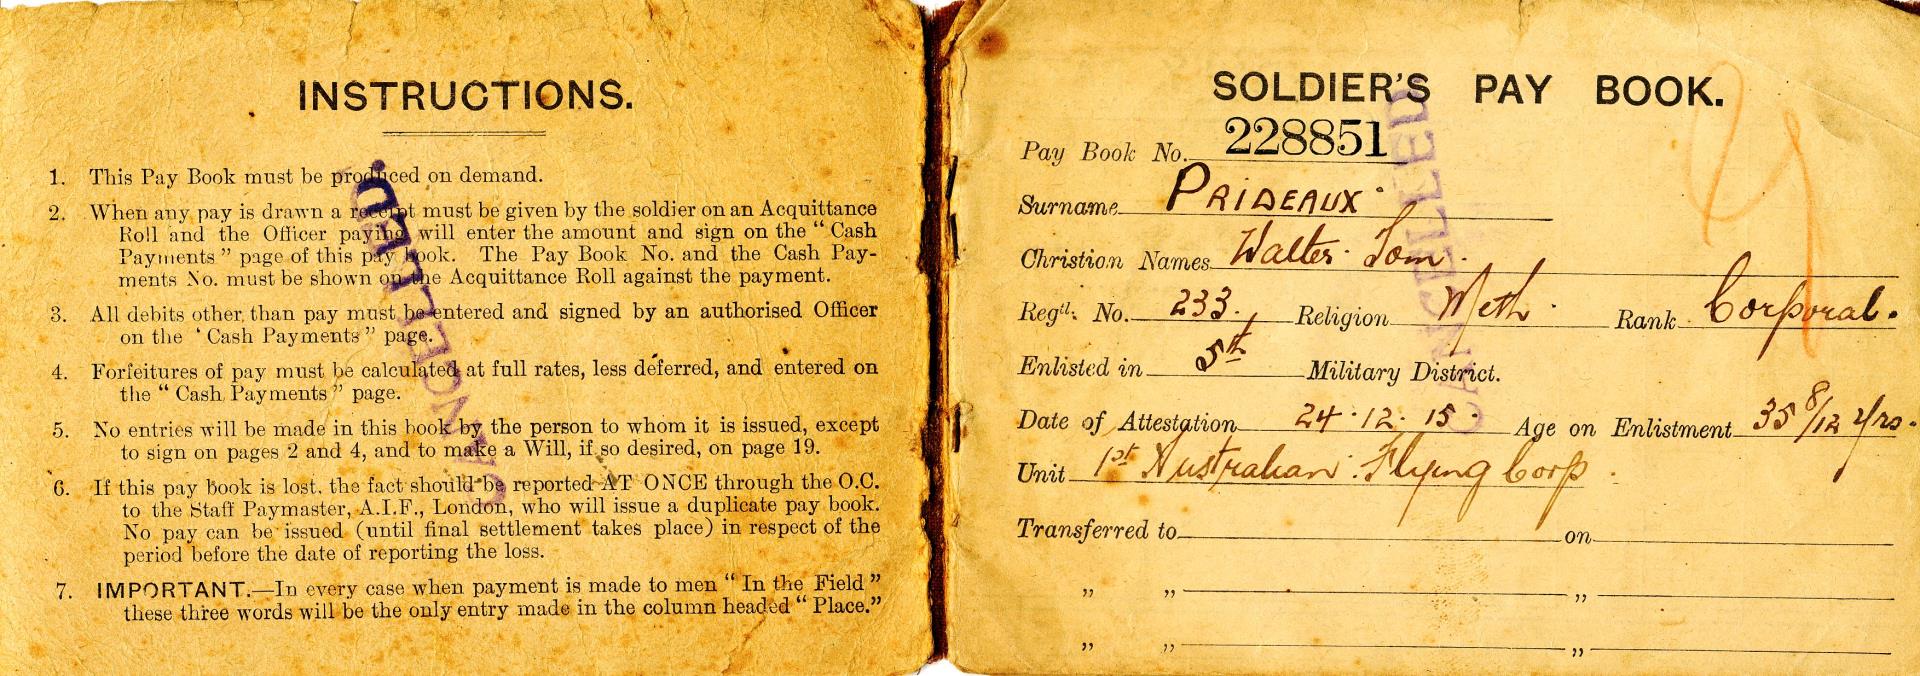 INSTRUCTIONS.
1. This Pay Book must be produced on demand.
2. When any pay is drawn a receipt must be given by the soldier on an Acquittance
Roll and the Officer paying will enter the amount and sign on the “Cash
Payments” page of this pay book. The Pay Book No. and the Cash Pay-
ments No. must be shown on the Acquittance Roll against the payment.
3. All debits other than pay must be entered and signed by an authorised Officer
on the ‘Cash Payments” page.
4. Forfeitures of pay must be calculated at full rates, less deferred, and entered on
the “Cash Payments” page.
5. No entries will be made in this book by the person to whom it is issued, except
to sign on pages 2 and 4, and to make a Will, if so desired, on page 19.
6. If this pay book is lost, the fact should be reported AT ONCE through the O.C.
to the Staff Paymaster, A.I.F., London, who will issue a duplicate pay book.
No pay can be issued (until final settlement takes place) in respect of the
period before the date of reporting the loss.
7. IMPORTANT.—In every case when payment is made to men “In the Field”
these three words will be the only entry made in the column headed “Place.”
CANCELLED.
SOLDIER'S PAY BOOK.
Pay Book No. 228851
Surname PRIDEAUX
Christian Names Walter Tom.
Regtl. No. 233. Religion Meth Rank Corporal.
Enlisted in 5th Military District.
Date of Attestation 24.12.15. Age on Enlistment 35 8/12 Yrs.
Unit 1st Australian Flying Corp.
Transferred to on
„ „ „
„ „ „
CANCELLED